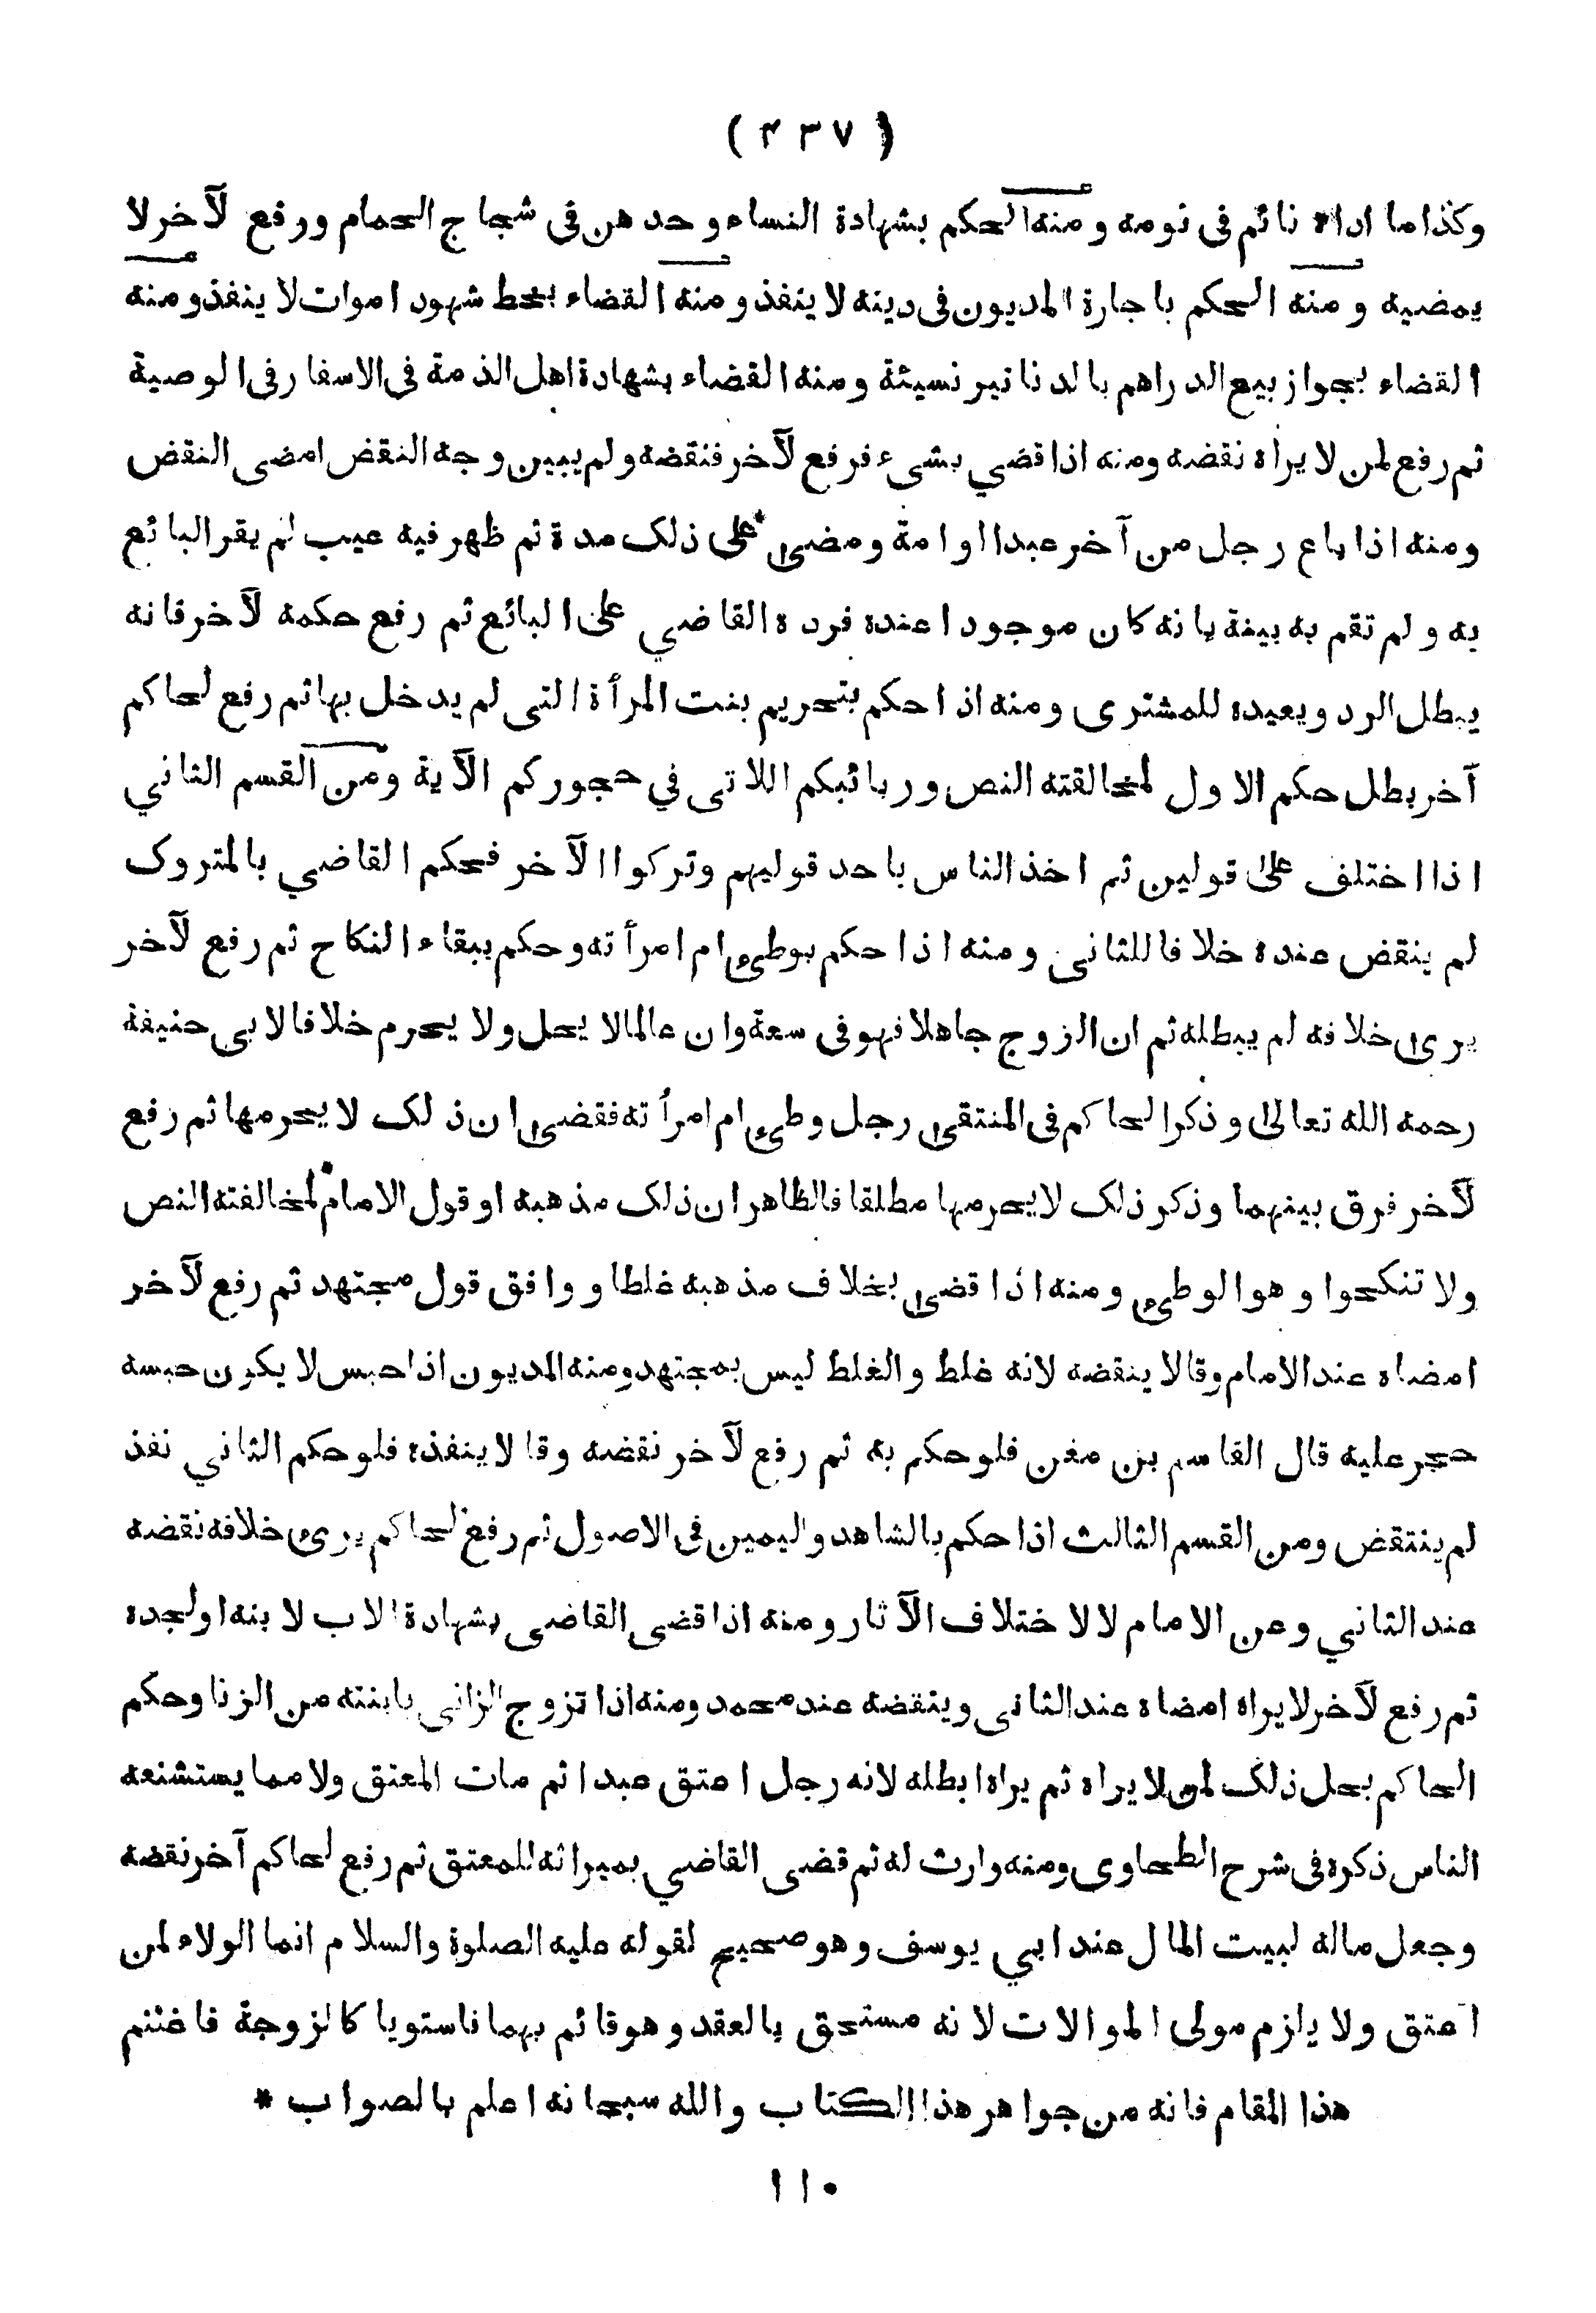 ( ۴۳۷ )
وكذا ما اداه نائم فى نومه ومنه الحكم بشهادة النساء وحدهن فى شجاج الحمام ورفع لآخر لا
يمضيه ومنه الحكم باجارة المديون فى دينه لا ينفذ ومنه القضاء بخط شهود اموات لا ينفذ ومنه
القضاء بجواز بيع الدراهم بالدنانير نسيئة ومنه القضاء بشهادة اهل الذمة فى الاسفار فى الوصية
ثم رفع لمن لا يراه نقضه ومنه اذا قضي بشىء فرفع لآخر فنقضه ولم يبين وجه النقض امضى النقض
ومنه اذا باع رجل من آخر عبدا او امة ومضىٰ علىٰ ذلک مدة ثم ظهر فيه عيب لم يقر البائع
به ولم تقم به بينة بانه كان موجودا عنده فرده القاضي علىٰ البائع ثم رفع حكمه لآخر فانه
يبطل الرد ويعيده للمشترى ومنه اذا حكم بتحريم بنت المرأة التى لم يدخل بها ثم رفع لحاكم
آخر بطل حكم الاول لمخالفته النص وربائبكم اللاتى في حجوركم الآية ومن القسم الثاني
اذا اختلف علىٰ قولين ثم اخذ الناس باحد قوليهم وتركوا الآخر فحكم القاضي بالمتروک
لم ينقض عنده خلافا للثانى ومنه اذا حكم بوطىء ام امرأته وحكم ببقاء النكاح ثم رفع لآخر
يرىٰ خلافه لم يبطله ثم ان الزوج جاهلا فهو فى سعة وان عالما لا يحل ولا يحرم خلافا لابى حنيفة
رحمه الله تعالىٰ وذكر الحاكم فى المنتقىٰ رجل وطىء ام امرأته فقضىٰ ان ذلک لا يحرمها ثم رفع
لآخر فرق بينهما وذكر ذلک لا يحرمها مطلقا فالظاهر ان ذلک مذهبه او قول الامام لمخالفته النص
ولا تنكحوا وهو الوطىء ومنه اذا قضىٰ بخلاف مذهبه غلطا ووافق قول مجتهد ثم رفع لآخر
امضاه عند الامام وقالا ينقضه لانه غلط والغلط ليس بمجتهد ومنه المديون اذا حبس لا يكون حبسه
حجر عليه قال القاسم بن معن فلو حكم به ثم رفع لآخر نقضه وقالا ينفذه فلو حكم الثاني نفذ
لم ينتقض ومن القسم الثالث اذا حكم بالشاهد واليمين فى الاصول ثم رفع لحاكم يرىٰ خلافه نقضه
عند الثاني وعن الامام لا لاختلاف الآثار ومنه اذا قضى القاضى بشهادة الاب لابنه او لجده
ثم رفع لآخر لا يراه امضاه عند الثانى وينقضه عند محمد ومنه اذا تزوج الزانى بابنته من الزنا وحكم
الحاكم بحل ذلک لمن لا يراه ثم يراه ابطله لانه رجل اعتق عبدا ثم مات المعتق ولا مما يستشنعه
الناس ذكره فى شرح الطحاوى ومنه وارث له ثم قضى القاضي بميراثه للمعتق ثم رفع لحاكم آخر نقضه
وجعل ماله لبيت المال عند ابي يوسف وهو صحيح لقوله عليه الصلوة والسلام انما الولاء لمن
اعتق ولا يلزم مولى الموالات لانه مستحق بالعقد وهو قائم بهما فاستويا كالزوجة فاغتنم
هذا المقام فانه من جواهر هذا الكتاب والله سبحانه اعلم بالصواب *
١١٠